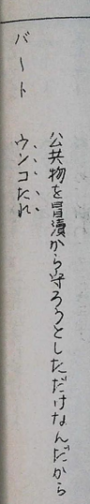 公共物を冒瀆から守ろうとしただけなんだから
バート
ウンコたれ